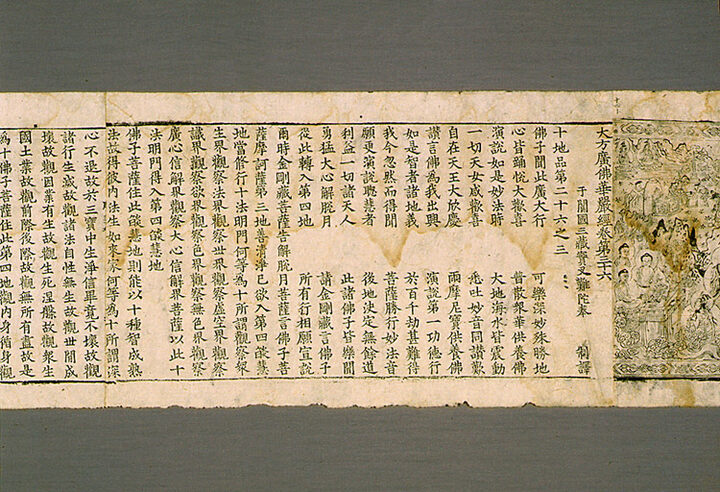 大方廣佛華嚴經卷第三十六
于闐國三藏實叉難陀奉 制譯
十地品第二十六之三
佛子聞此廣大行 可樂深妙殊勝地
心皆踊悅大歡喜 普散衆華供養佛
演說如是妙法時 大地海水皆震動
一切天女咸歡喜 悉吐妙音同讚歎
自在天王大欣慶 雨摩尼寶供養佛
讚言佛為我出興 演說第一功德行
如是智者諸地義 於百千劫甚難得
我今忽然而得聞 菩薩勝行妙法音
願更演說聰慧者 後地決定無餘道
利益一切諸天人 此諸佛子皆樂聞
勇猛大心解脫月 請金剛藏言佛子
從此轉入第四地 所有行相願宣說
爾時金剛藏菩薩告解脫月菩薩言佛子菩
薩摩訶薩第三地善清淨已欲入第四燄慧
地當修行十法明門何等為十所謂觀察衆
生界觀察法界觀察世界觀察虛空界觀察
識界觀察欲界觀察色界觀察無色界觀察
廣心信解界觀察大心信解界菩薩以此十
法明門得入第四燄慧地
佛子菩薩住此燄慧地則能以十種智成熟
法故得彼內法生如來家何等為十所謂深
心不退故於三寶中生淨信畢竟不壞故觀
諸行生滅故觀諸法自性無生故觀世間成
壞故觀因業有生故觀生死涅槃故觀衆生
國土業故觀前際後際故觀無所有盡故是
為十佛子菩薩住此第四地觀內身循身觀